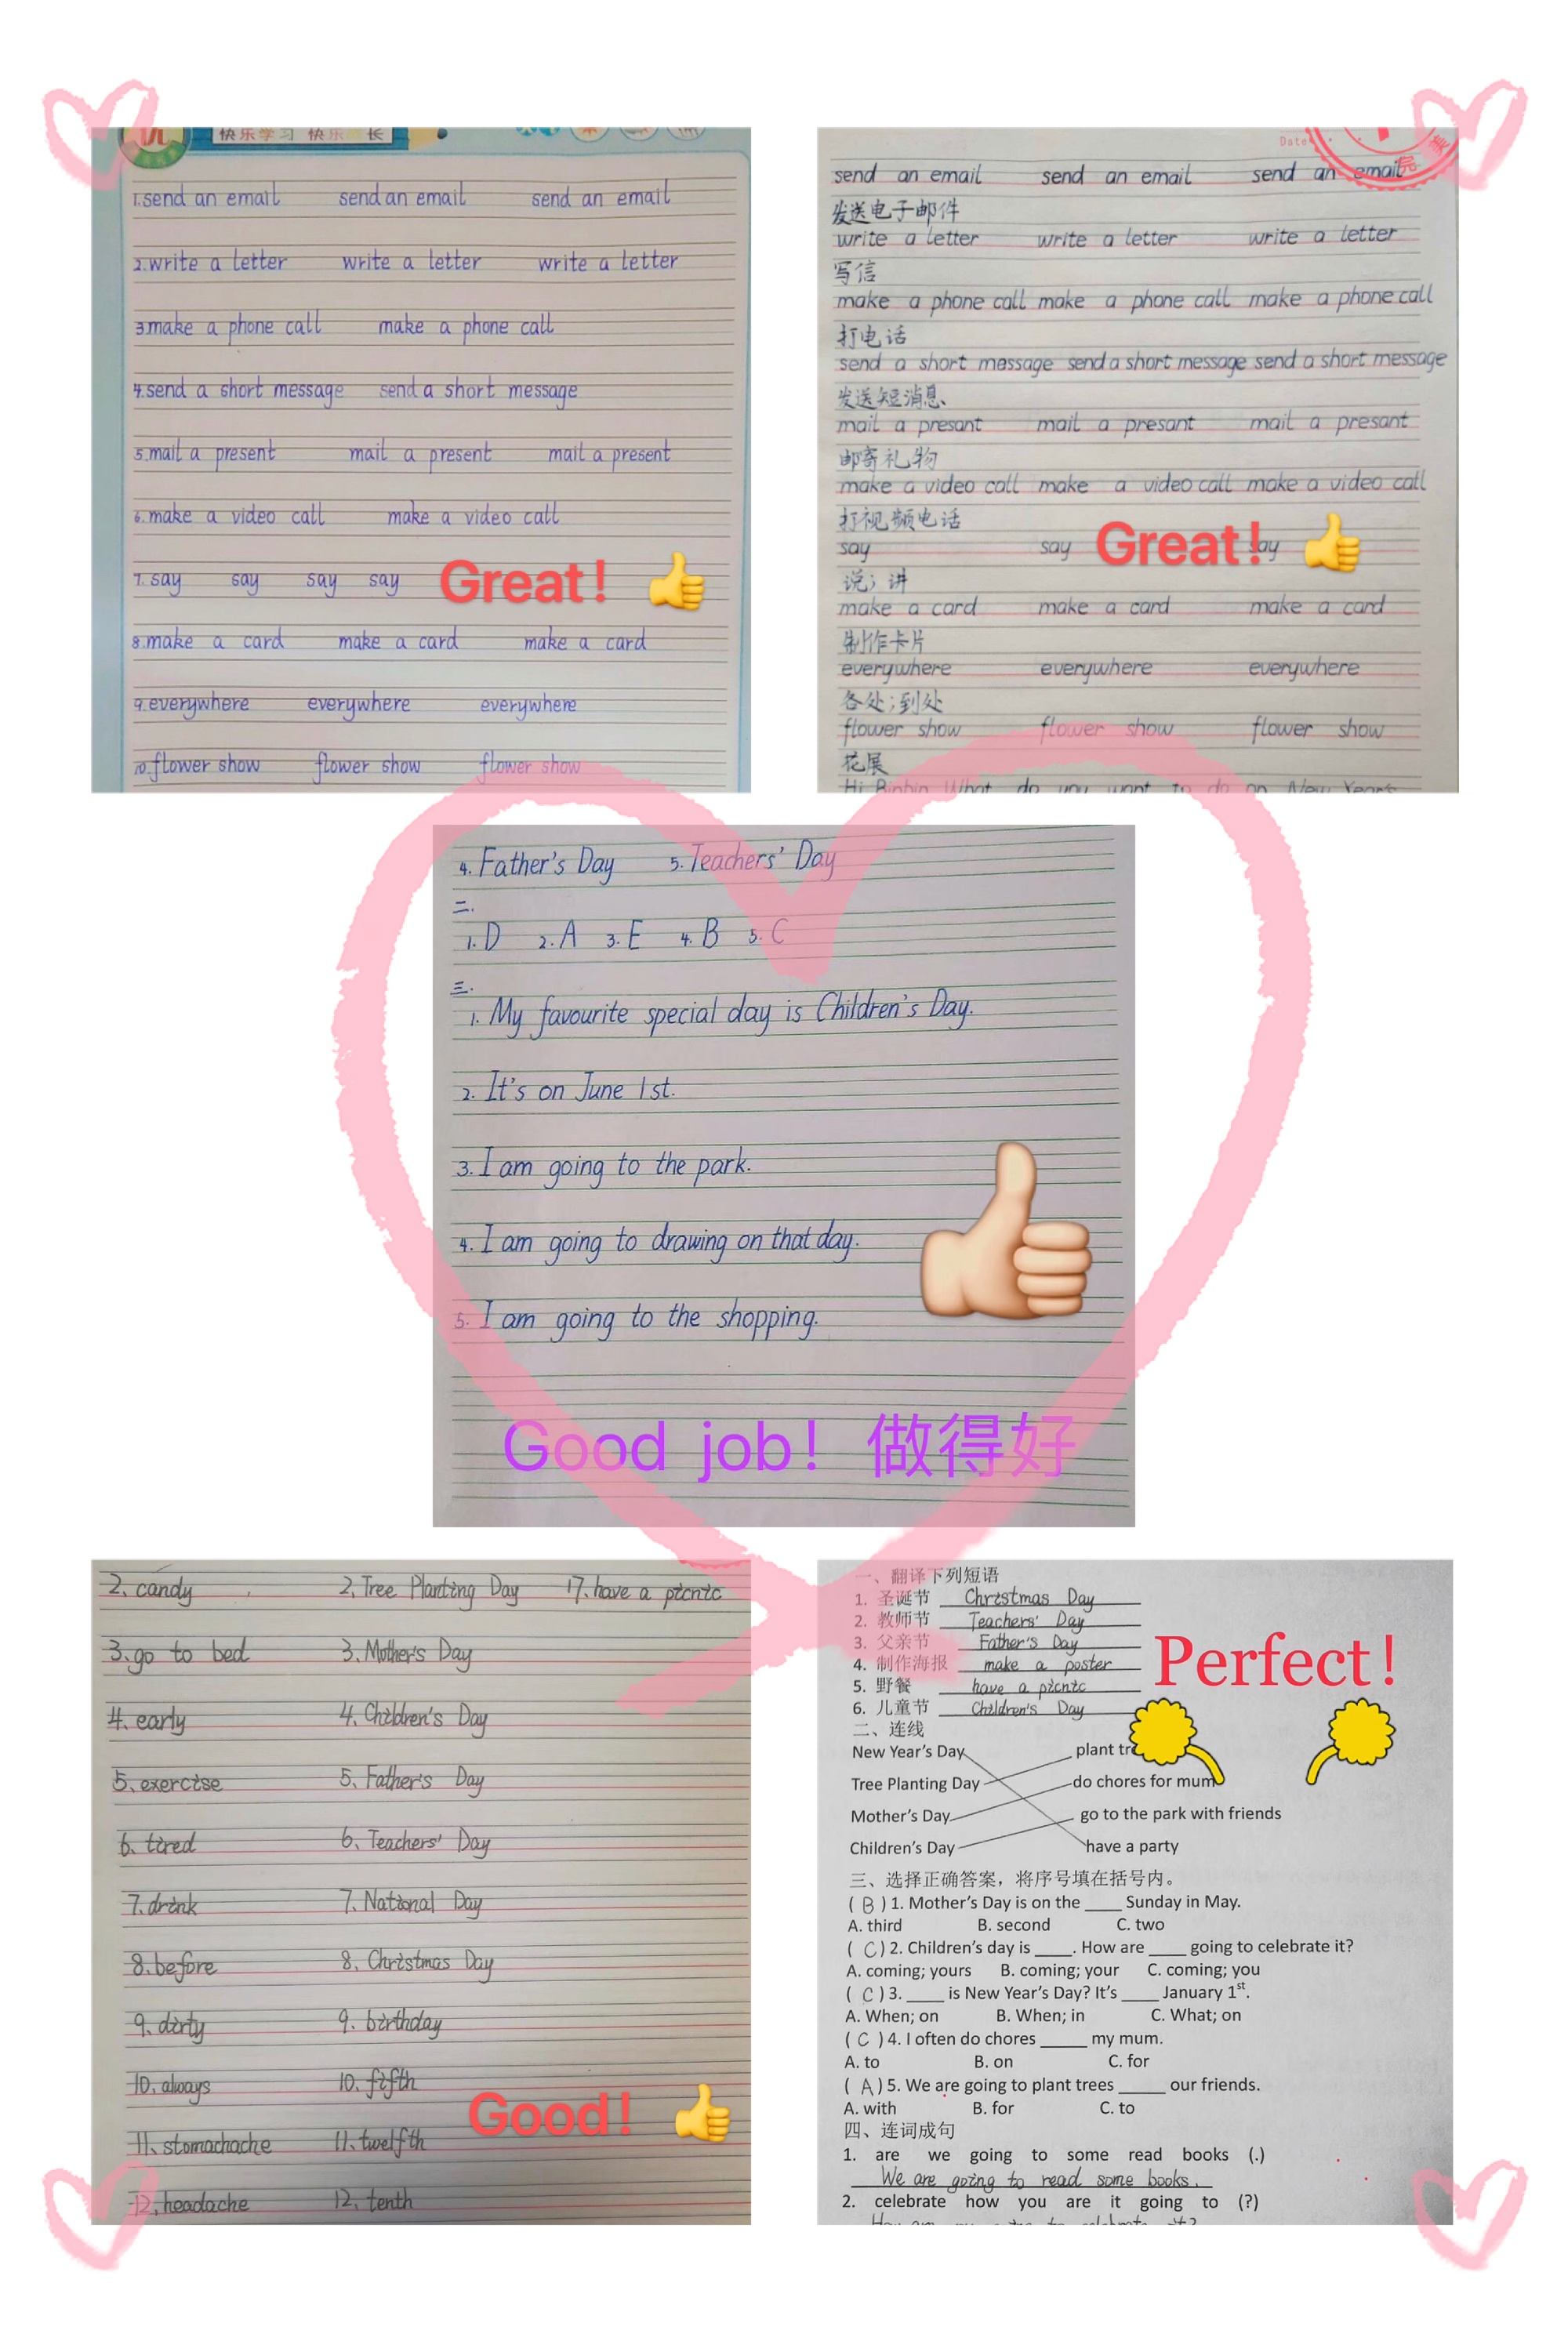 快乐学习 快乐 长
1.send an email send an email send an email
2.write a letter write a letter write a letter
3.make a phone call make a phone call
4.send a short message send a short message
5.mail a present mail a present mail a present
6.make a video call make a video call
7. say say say say
Great! 👍
8.make a card make a card make a card
9.everywhere everywhere everywhere
10.flower show flower show flower show
Date
send an email send an email send an email
发送电子邮件
write a letter write a letter write a letter
写信
make a phone call make a phone call make a phone call
打电话
send a short message send a short message send a short message
发送短消息
mail a presant mail a presant mail a presant
邮寄礼物
make a video call make a video call make a video call
打视频电话
say say say
Great! 👍
说；讲
make a card make a card make a card
制作卡片
everywhere everywhere everywhere
各处；到处
flower show flower show flower show
花展
Hi Binbin What do you want to do on New Year's
4. Father's Day 5. Teachers' Day
二.
1. D 2. A 3. E 4. B 5. C
三.
1. My favourite special day is Children's Day.
2. It's on June 1st.
3. I am going to the park.
4. I am going to drawing on that day.
5. I am going to the shopping.
Good job! 做得好
2、candy 2、Tree Planting Day 17、have a picnic
3、go to bed 3、Mother's Day
4、early 4、Children's Day
5、exercise 5、Father's Day
6、tired 6、Teachers' Day
7、drink 7、National Day
8、before 8、Christmas Day
9、dirty 9、birthday
10、always 10、fifth
Good! 👍
11、stomachache 11、twelfth
12、headache 12、tenth
一、翻译下列短语
1. 圣诞节 Christmas Day
2. 教师节 Teachers' Day
3. 父亲节 Father's Day
4. 制作海报 make a poster
5. 野餐 have a picnic
6. 儿童节 Children's Day
Perfect!
二、连线
New Year's Day plant tre
Tree Planting Day do chores for mum
Mother's Day go to the park with friends
Children's Day have a party
三、选择正确答案，将序号填在括号内。
( B ) 1. Mother's Day is on the ____ Sunday in May.
A. third B. second C. two
( C ) 2. Children's day is ____. How are ____ going to celebrate it?
A. coming; yours B. coming; your C. coming; you
( C ) 3. ____ is New Year's Day? It's ____ January 1st.
A. When; on B. When; in C. What; on
( C ) 4. I often do chores _____ my mum.
A. to B. on C. for
( A ) 5. We are going to plant trees _____ our friends.
A. with B. for C. to
四、连词成句
1. are we going to some read books (.)
We are going to read some books.
2. celebrate how you are it going to (?)